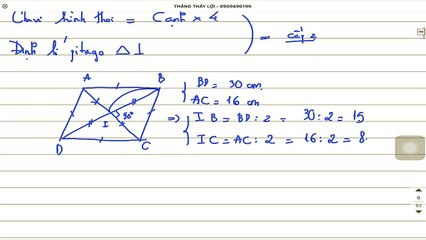 THẮNG THẦY LỢI - 0909496199
Chu vi hình thoi = Cạnh x 4
Định lí pitago △⊥
=> cấp 2
A B
I 90°
D C
BD = 30 cm.
AC = 16 cm
=> IB = BD : 2 = 30 : 2 = 15
IC = AC : 2 = 16 : 2 = 8